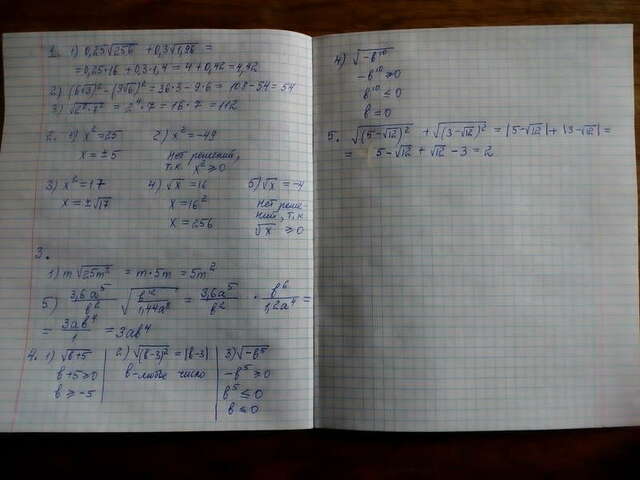 1. 1) 0,25√256 + 0,3√1,96 =
= 0,25·16 + 0,3·1,4 = 4 + 0,42 = 4,42
2) (6√3)² - (3√6)² = 36·3 - 9·6 = 108 - 54 = 54
= 2⁴·7 = 16·7 = 112
2. 1) x² = 25 2) x² = -49
x = ±5 нет решений,
т.к. x² ≥ 0
3) x² = 17 4) √x = 16 5) √x = -4
x = ±√17 x = 16² нет реше-
x = 256 ний, т.к
√x ≥ 0
3.
1) m√25m² = m·5m = 5m²
5) 3,6a⁵/b² √(b¹²/1,44a⁸) = 3,6a⁵/b² · b⁶/1,2a⁴ =
= 3ab⁴/1 = 3ab⁴
4. 1) √b+5 2) √(b-3)² = |b-3| 3) √-b⁵
b+5 ≥ 0 b - любое число -b⁵ ≥ 0
b ≥ -5 b⁵ ≤ 0
b ≤ 0
4) √-b¹⁰
-b¹⁰ ≥ 0
b¹⁰ ≤ 0
b = 0
5. √(5-√12)² + √(3-√12)² = |5-√12| + |3-√12| =
= 5-√12 + √12 - 3 = 2